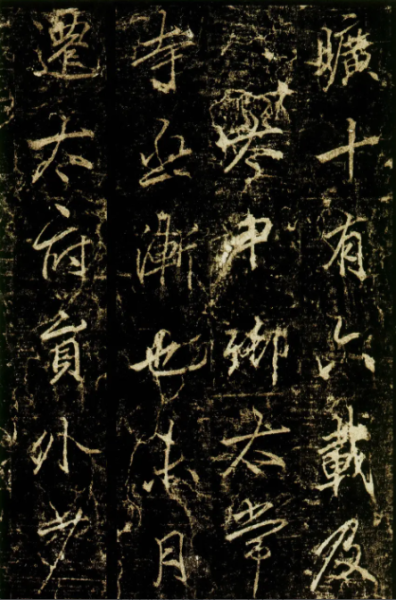 曠十有六載及
中御太常
寺丞漸也未月
遷太府員外少